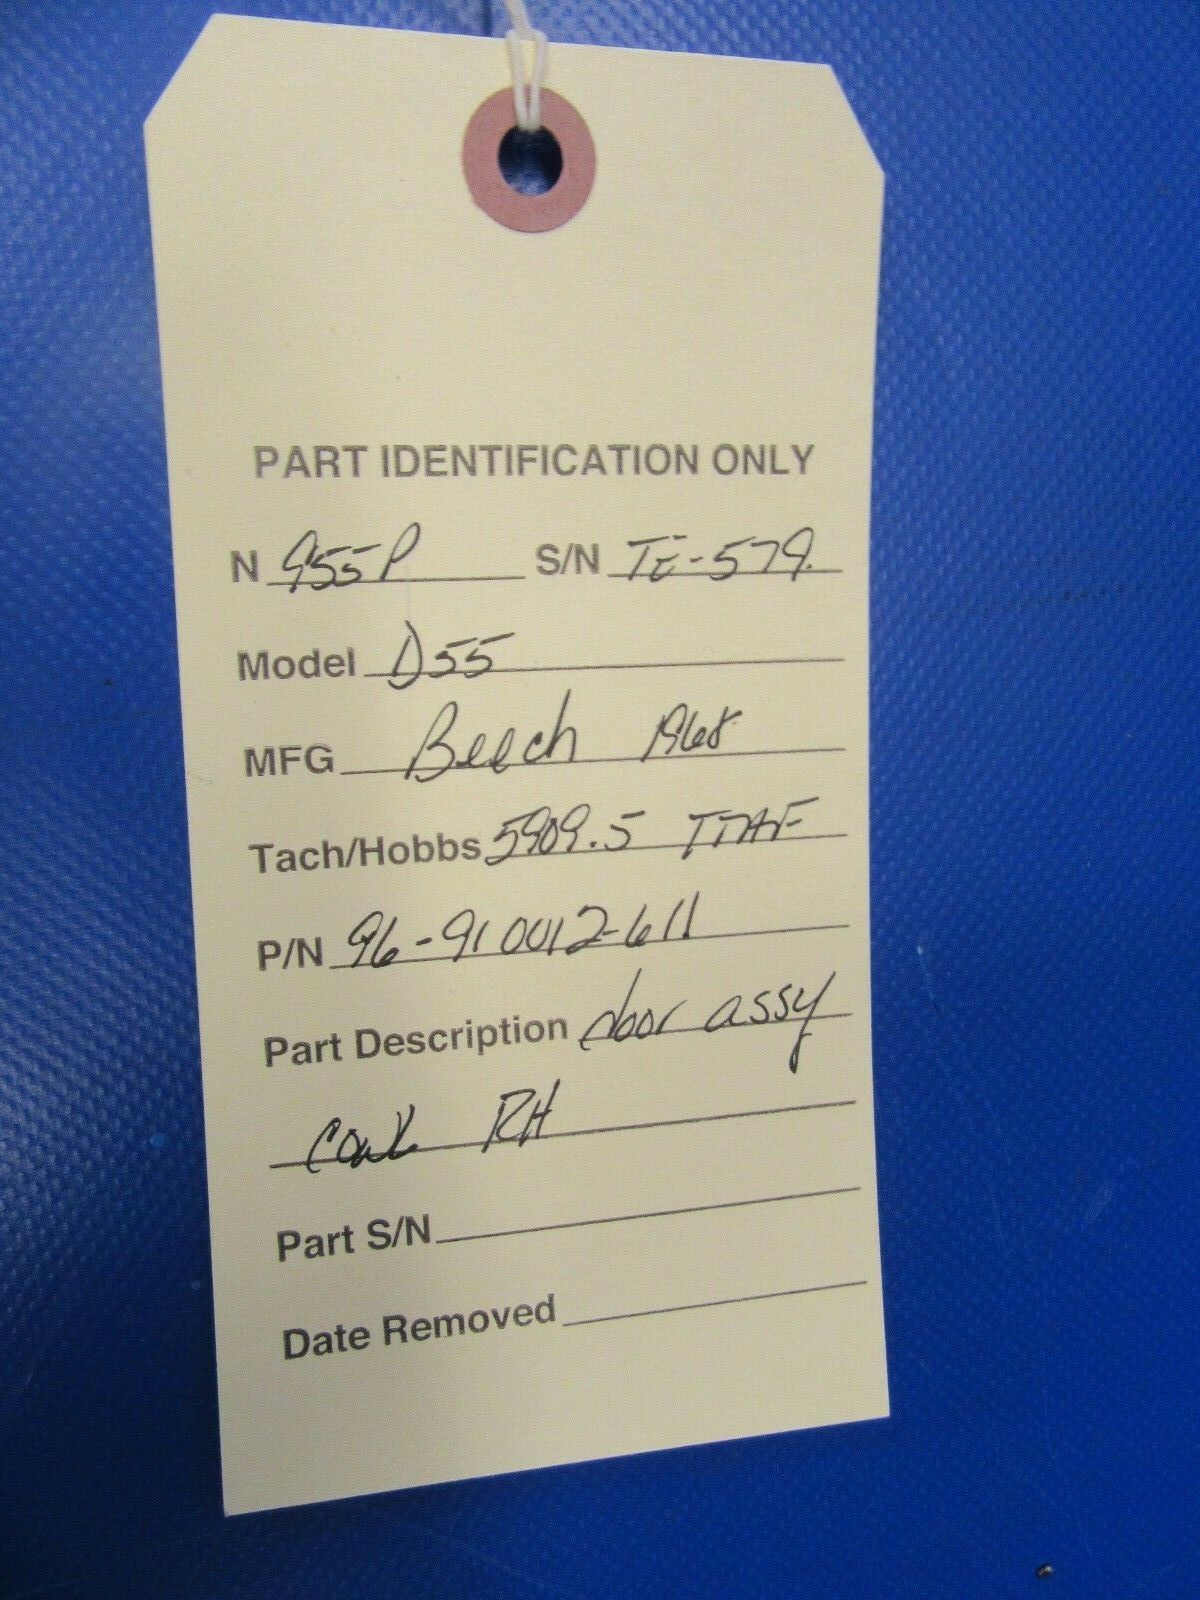 PART IDENTIFICATION ONLY
N 955P S/N TE-579.
Model D55
MFG Beech 1968
Tach/Hobbs 5909.5 TTAF
P/N 96-910012-611
Part Description door assy
Cowl RH
Part S/N
Date Removed